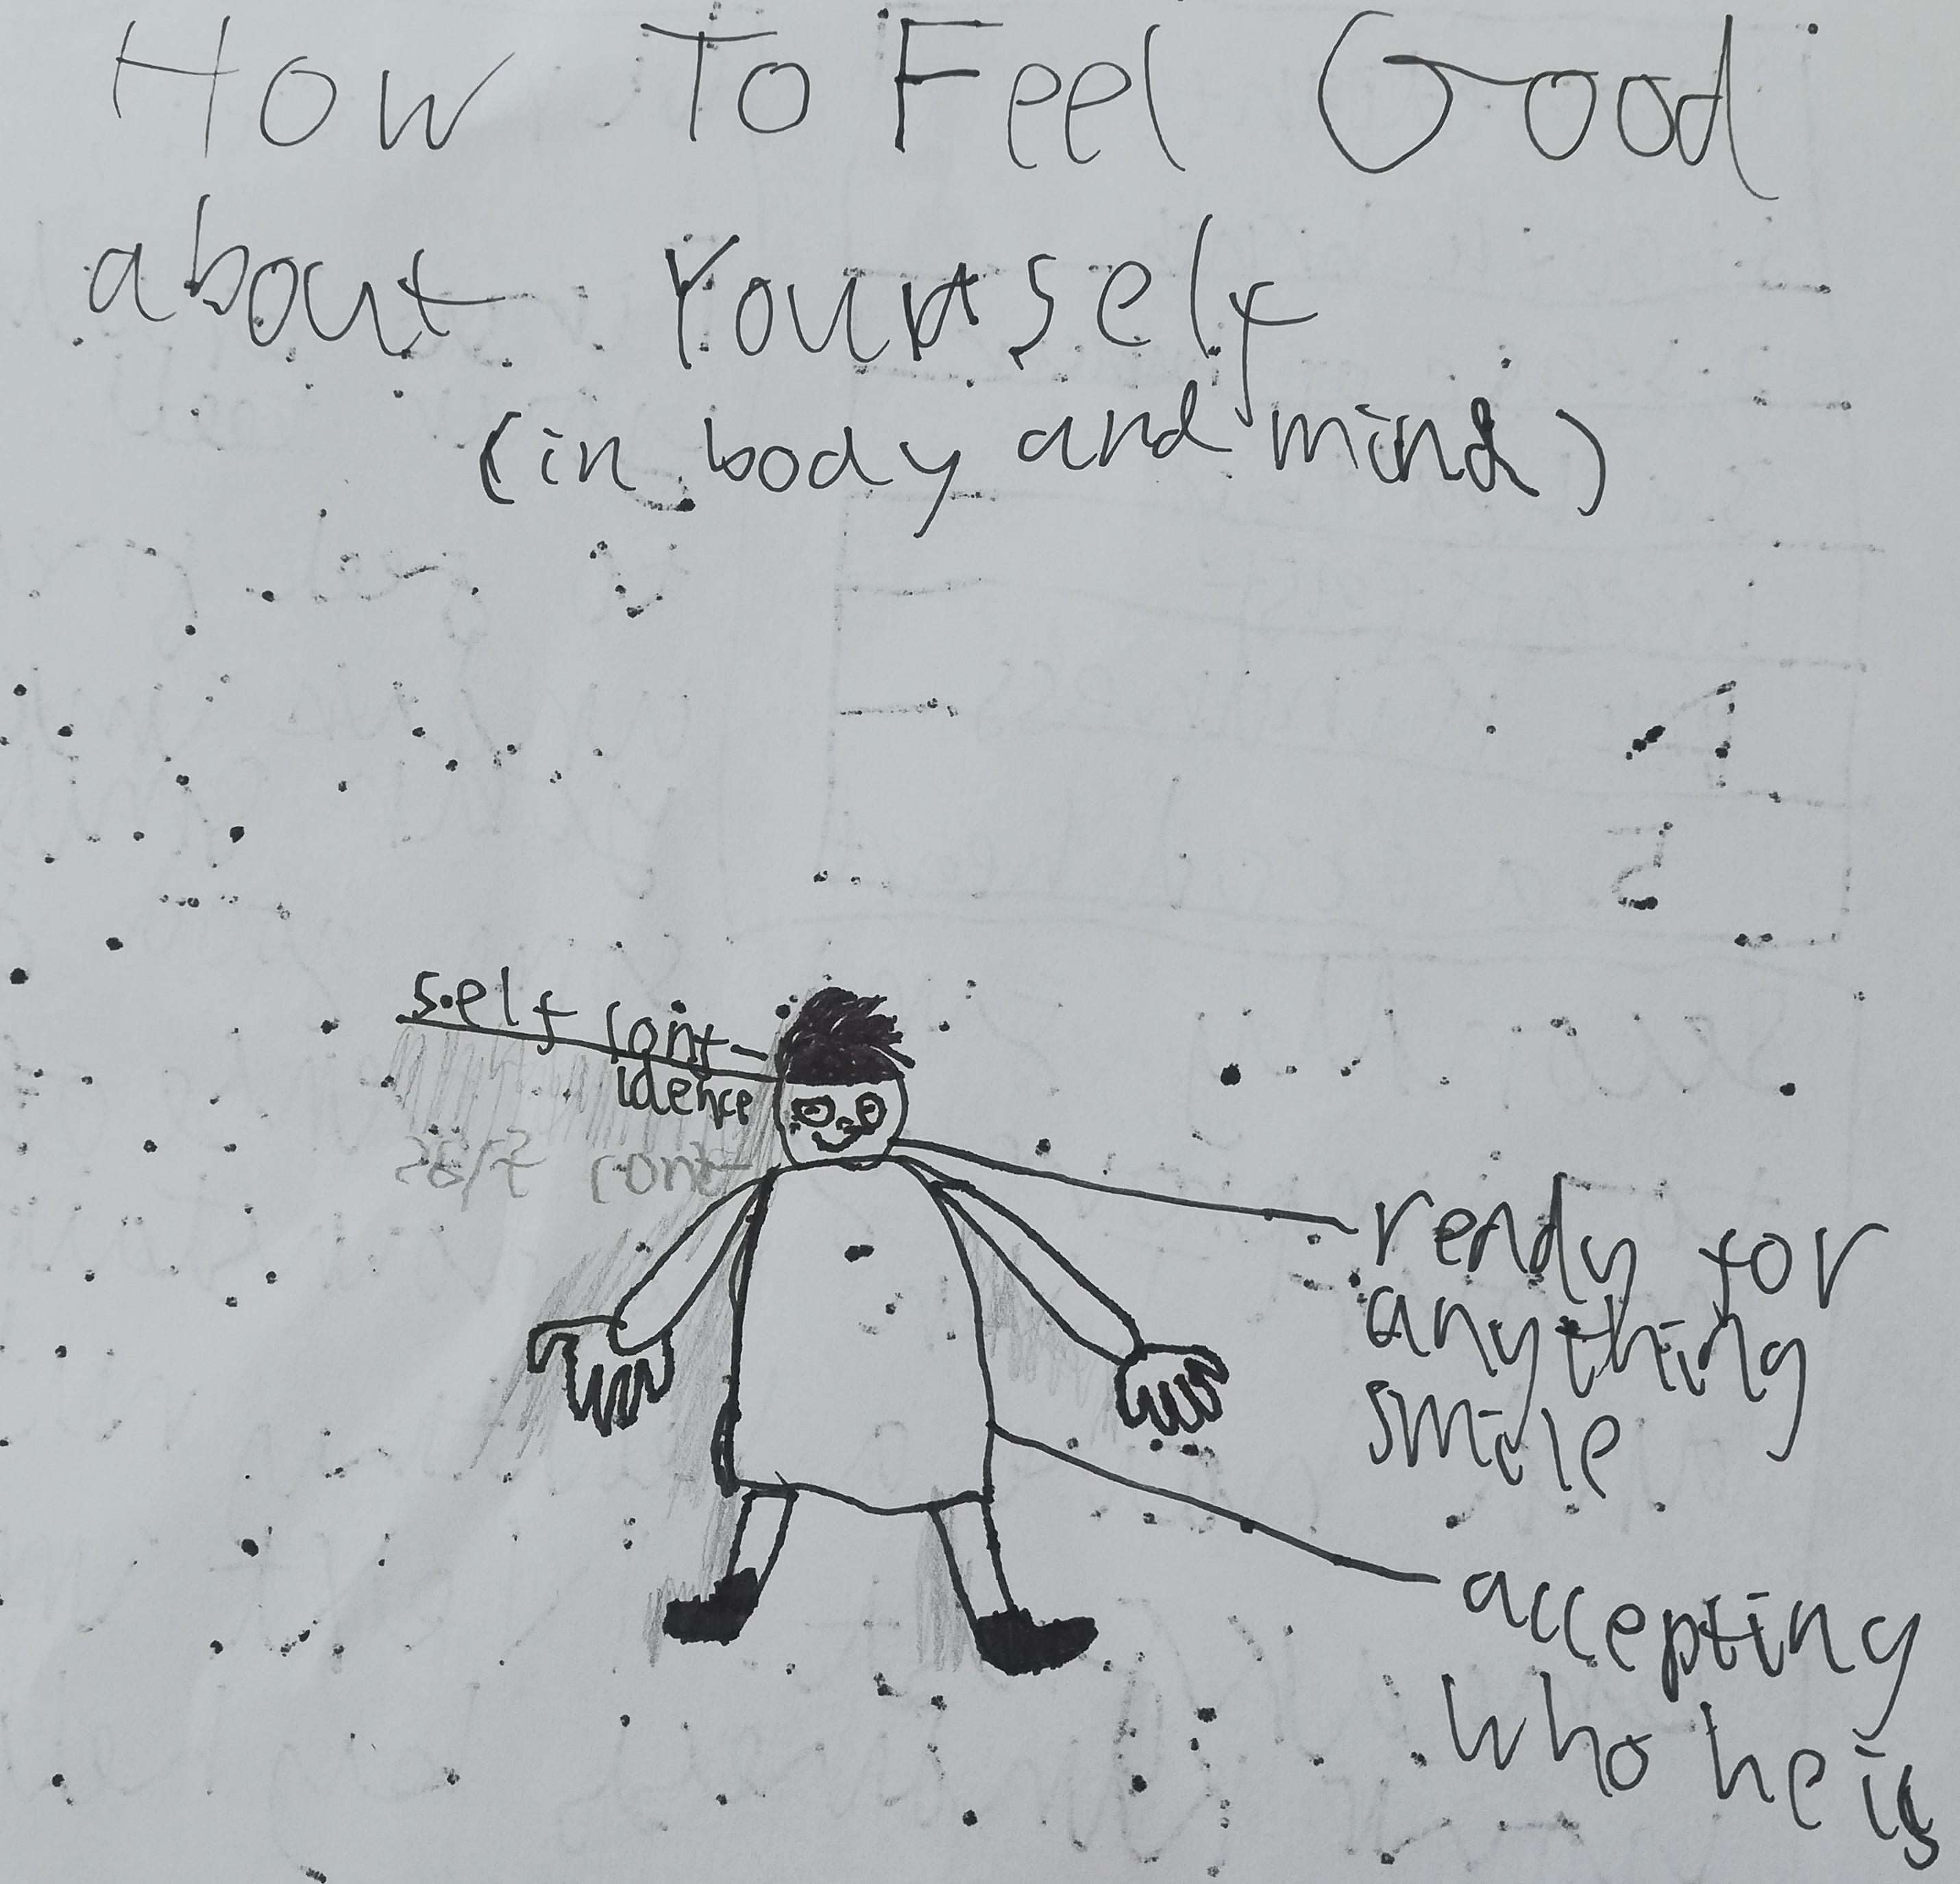 How To Feel Good
about Yourself
(in body and mind)
self conf-
idence
self conf-
ready for
anything
smile
accepting
who he is